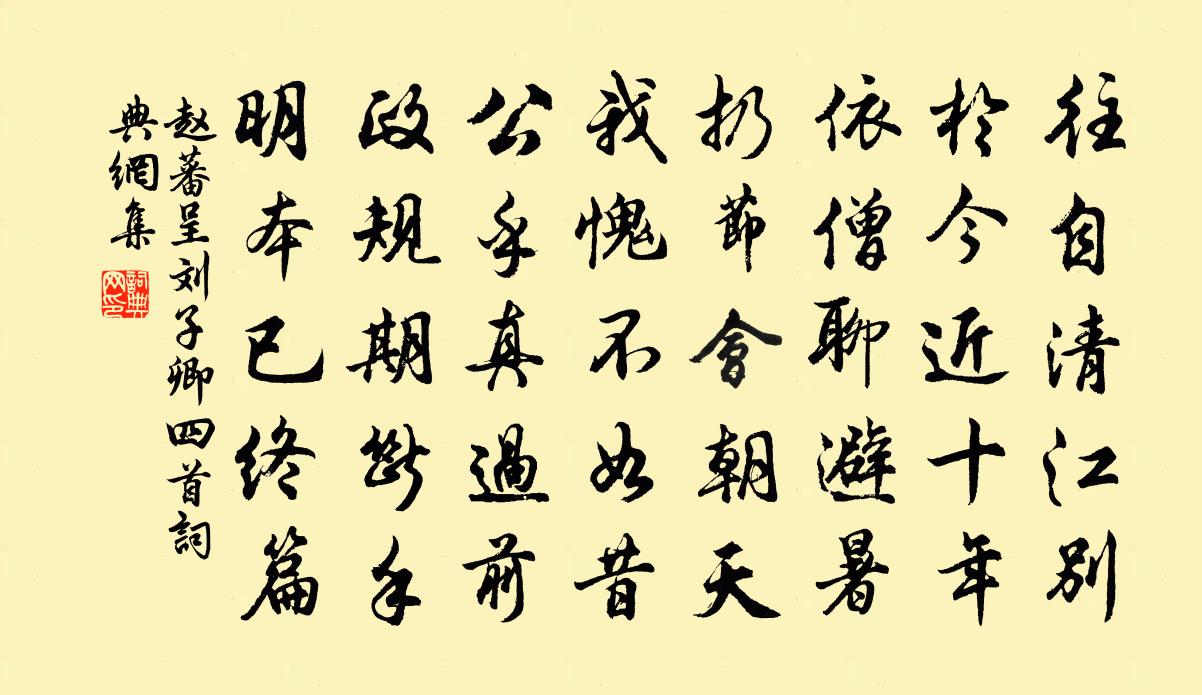 往自清江別
於今近十年
依僧聊避暑
扔節會朝天
我愧不如昔
公乎真過前
政規期斷手
明本已終篇
赵蕃呈刘子卿四首詞
典網集
詞典网印